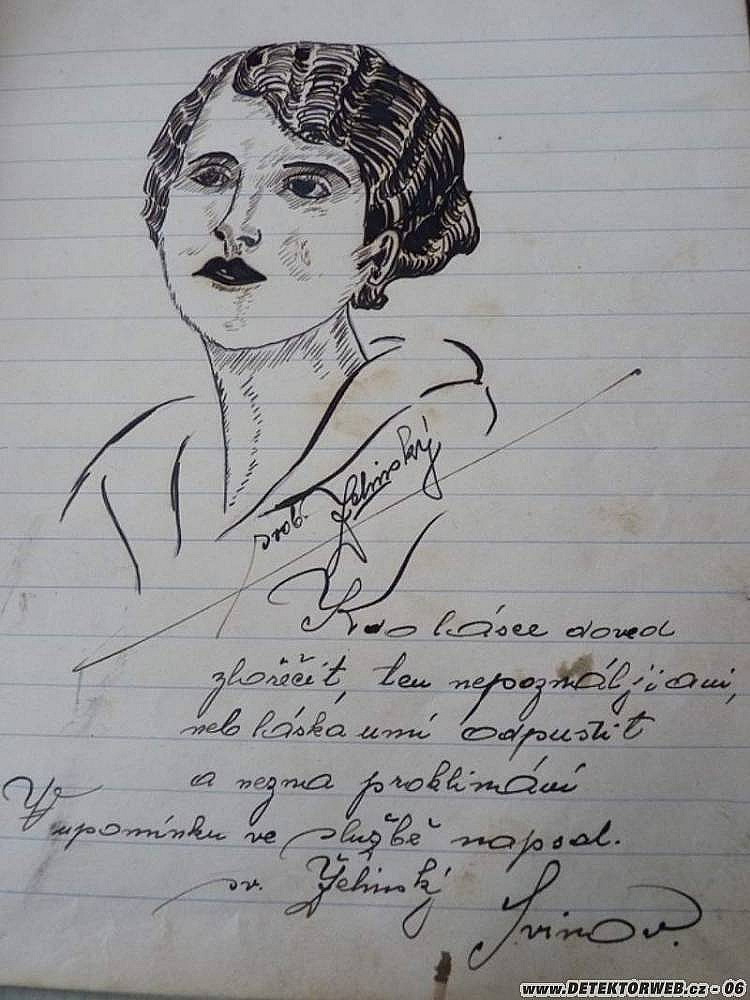 srob. Želinský
Kdo lásce doved
zlořečit, ten nepoznal ji ani,
neb láska umí odpustit
a nezna proklínání
Ve
upomínku ve službě napsal.
sv. Želinský
Svinov.
www.DETEKTORWEB.cz - 06